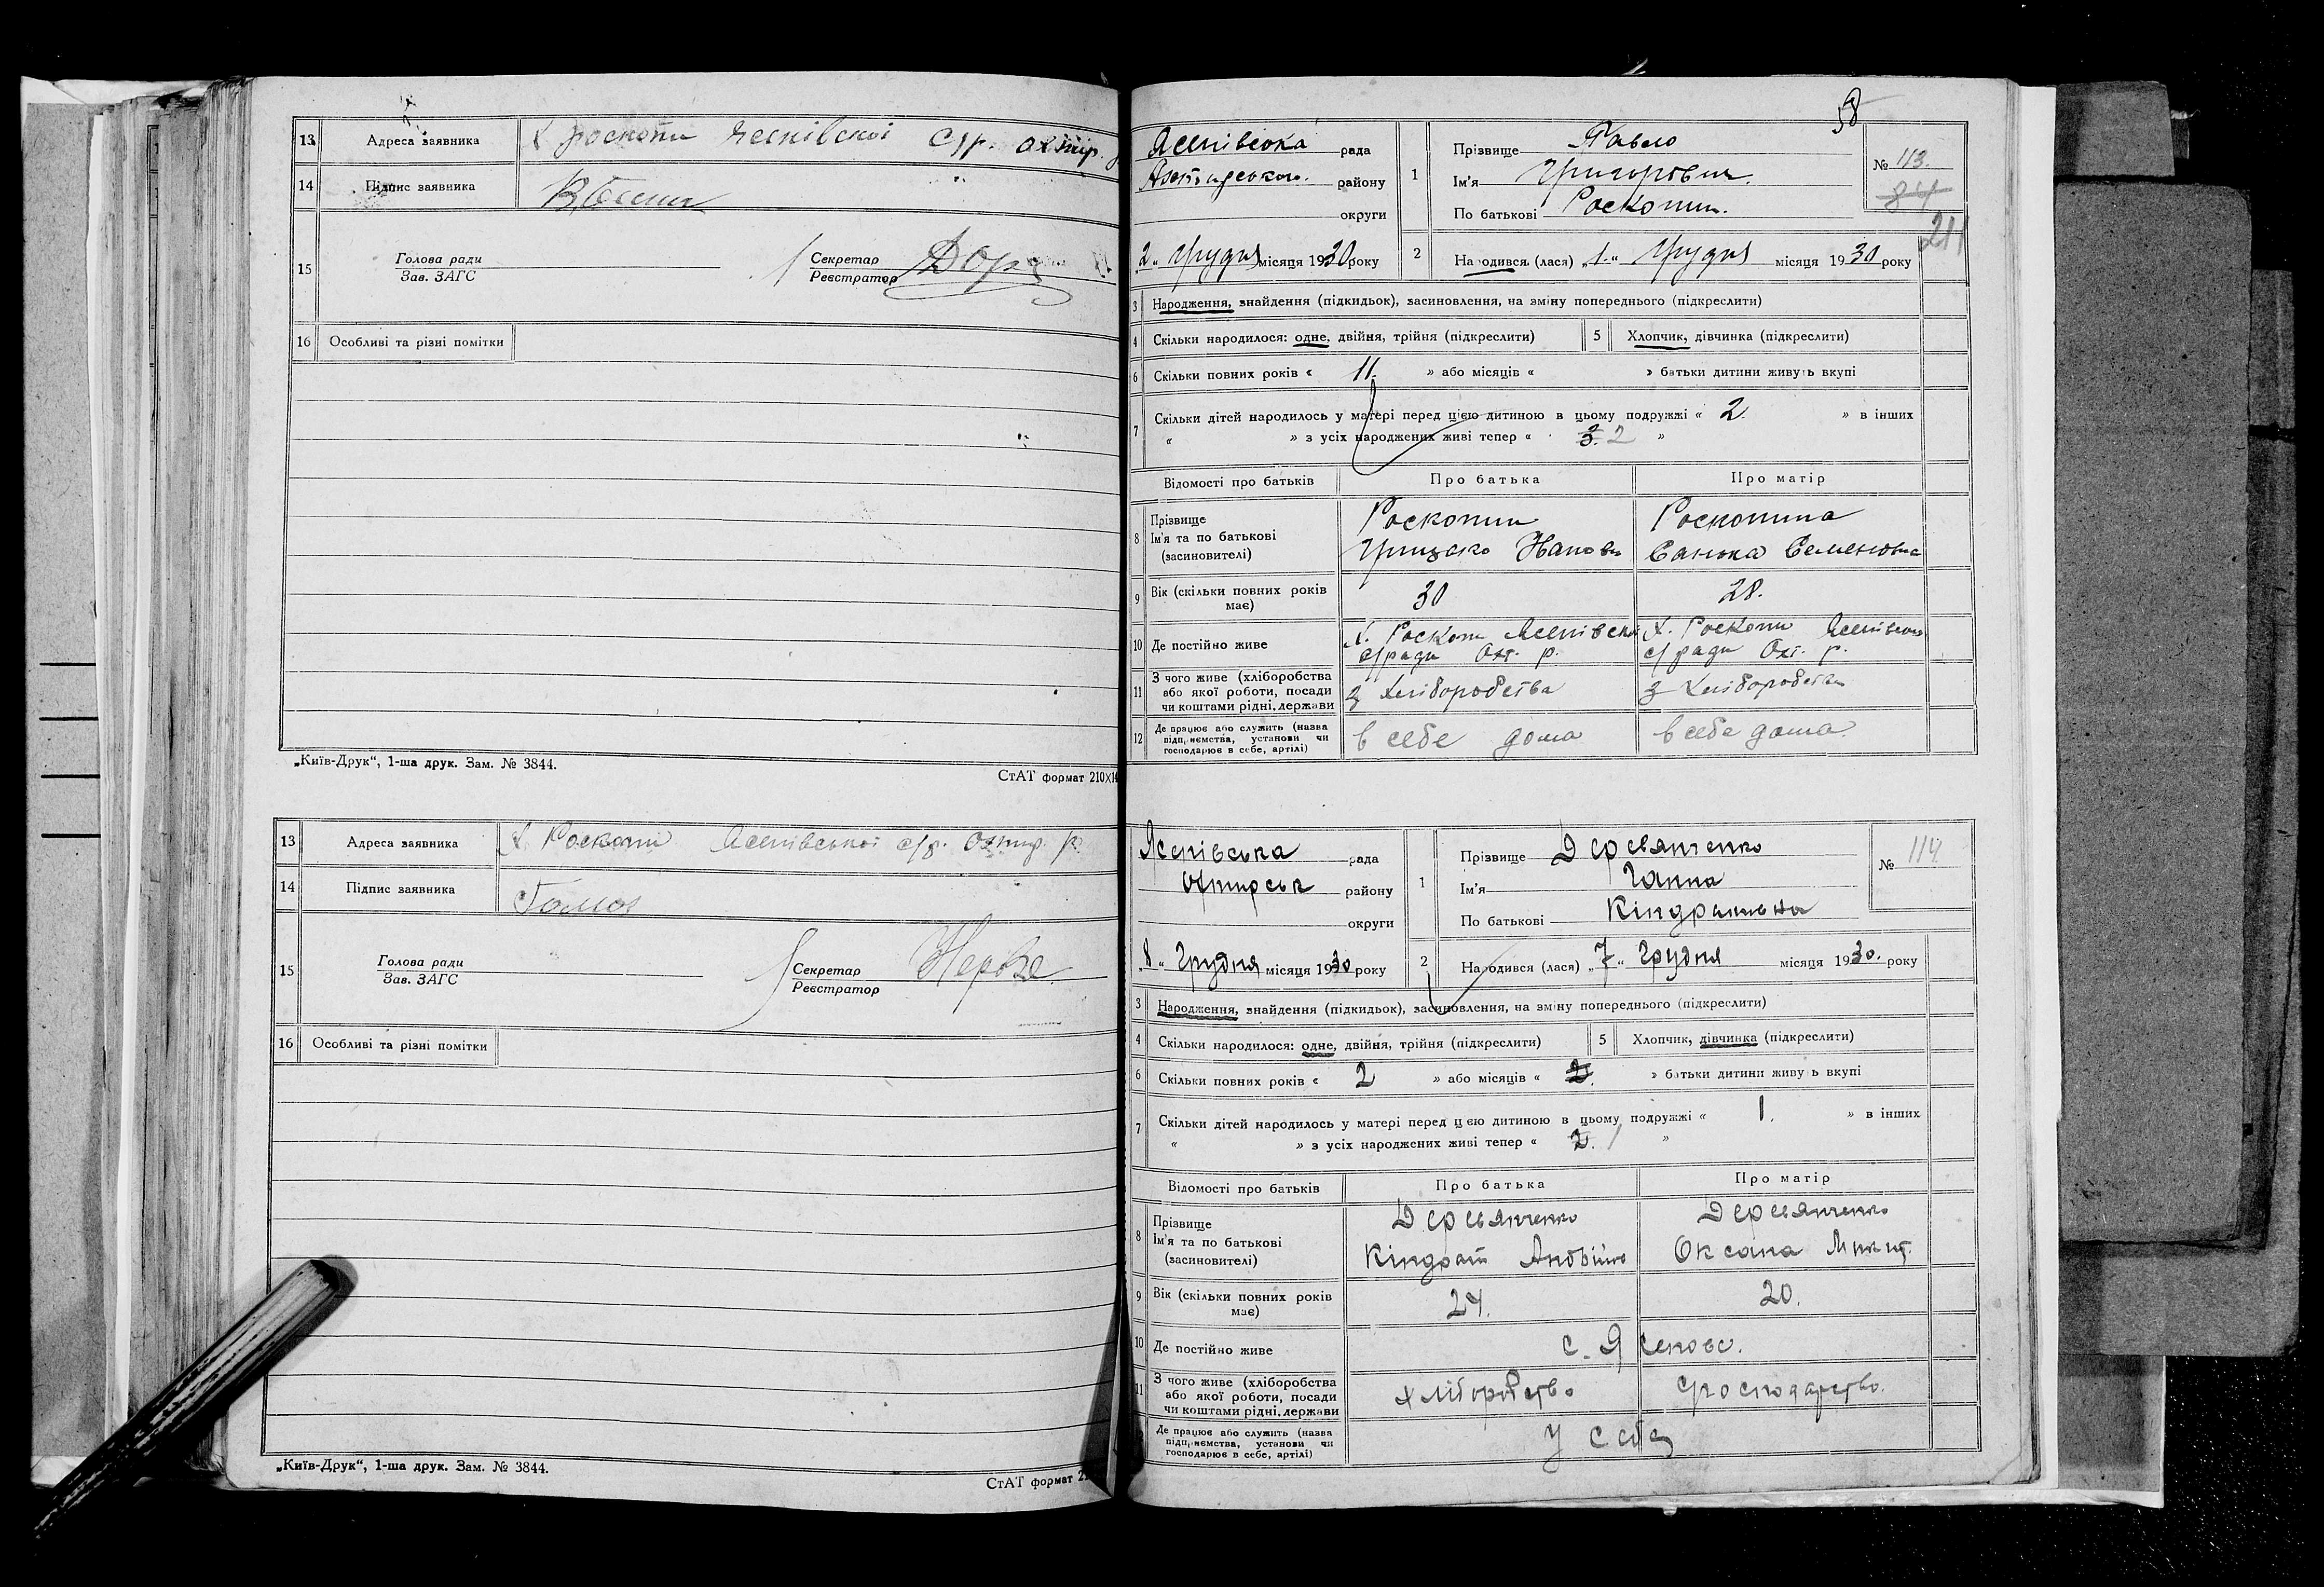 13 Адреса заявника х. роскопи Ясенівської с/р. охтир. р
14 Підпис заявника
15 Голова ради
Зав. ЗАГС
Секретар
Реєстратор
16 Особливі та різні помітки
„Київ-Друк“, 1-ша друк. Зам. № 3844.
СтАТ формат 210X14
13 Адреса заявника х. Роскопи Ясенівської с/р. Охтир. р.
14 Підпис заявника
15 Голова ради
Зав. ЗАГС
Секретар
Реєстратор
16 Особливі та різні помітки
„Київ-Друк“, 1-ша друк. Зам. № 3844.
СтАТ формат 2
58
Ясенівська рада
району
округи
1 Прізвище Павло
Ім'я Григорович.
По батькові Роскопин.
№ 113.
211
„2“ Грудня місяця 1930 року
2 Народився (лася) „1.“ Грудня місяця 1930 року
3 Народження, знайдення (підкидьок), засиновлення, на зміну попереднього (підкреслити)
4 Скільки народилося: одне, двійня, трійня (підкреслити)
5 Хлопчик, дівчинка (підкреслити)
6 Скільки повних років « 11. » або місяців « » батьки дитини живуть вкупі
7 Скільки дітей народилось у матері перед цією дитиною в цьому подружжі « 2. » в інших
« » з усіх народжених живі тепер « 3. 2 »
Відомості про батьків Про батька Про матір
8 Прізвище
Ім'я та по батькові
(засиновителі)
Роскопин
Грицько Іванов
Роскопина
Санька Семеновна
9 Вік (скільки повних років має) 30 28.
10 Де постійно живе
х. Роскопи Ясенівської
с/ради Охт. р.
х. Роскопи Ясенівської
с/ради Охт. р.
11 З чого живе (хліборобства
або якої роботи, посади
чи коштами рідні, держави
з хліборобства з хліборобства
12 Де працює або служить (назва
підприємства, установи чи
господарює в себе, артілі)
в себе дома в себе дома
Ясенівська рада
Охтирськ району
округи
1 Прізвище Деревянченко
Ім'я Ганна
По батькові Кіндратівна
№ 114
„8“ Грудня місяця 1930 року
2 Народився (лася) „7“ Грудня місяця 1930. року
3 Народження, знайдення (підкидьок), засиновлення, на зміну попереднього (підкреслити)
4 Скільки народилося: одне, двійня, трійня (підкреслити)
5 Хлопчик, дівчинка (підкреслити)
6 Скільки повних років « 2 » або місяців « 2. » батьки дитини живуть вкупі
7 Скільки дітей народилось у матері перед цією дитиною в цьому подружжі « 1. » в інших
« » з усіх народжених живі тепер « 2. 1 »
Відомості про батьків Про батька Про матір
8 Прізвище
Ім'я та по батькові
(засиновителі)
Деревянченко
Кіндрат Андрійов
Деревянченко
Оксана Микит.
9 Вік (скільки повних років має) 24. 20.
10 Де постійно живе с. Ясенове.
11 З чого живе (хліборобства
або якої роботи, посади
чи коштами рідні, держави
хліборобство господарство.
12 Де працює або служить (назва
підприємства, установи чи
господарює в себе, артілі)
у себе